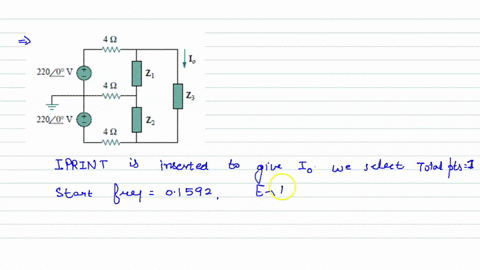 ⇒
4 Ω
I₀
220/0° V
Z₁
4 Ω
Z₃
220/0° V
Z₂
4 Ω
IPRINT is inserted to give I₀. We select Total pts=1
Start freq = 0.1592, E-1